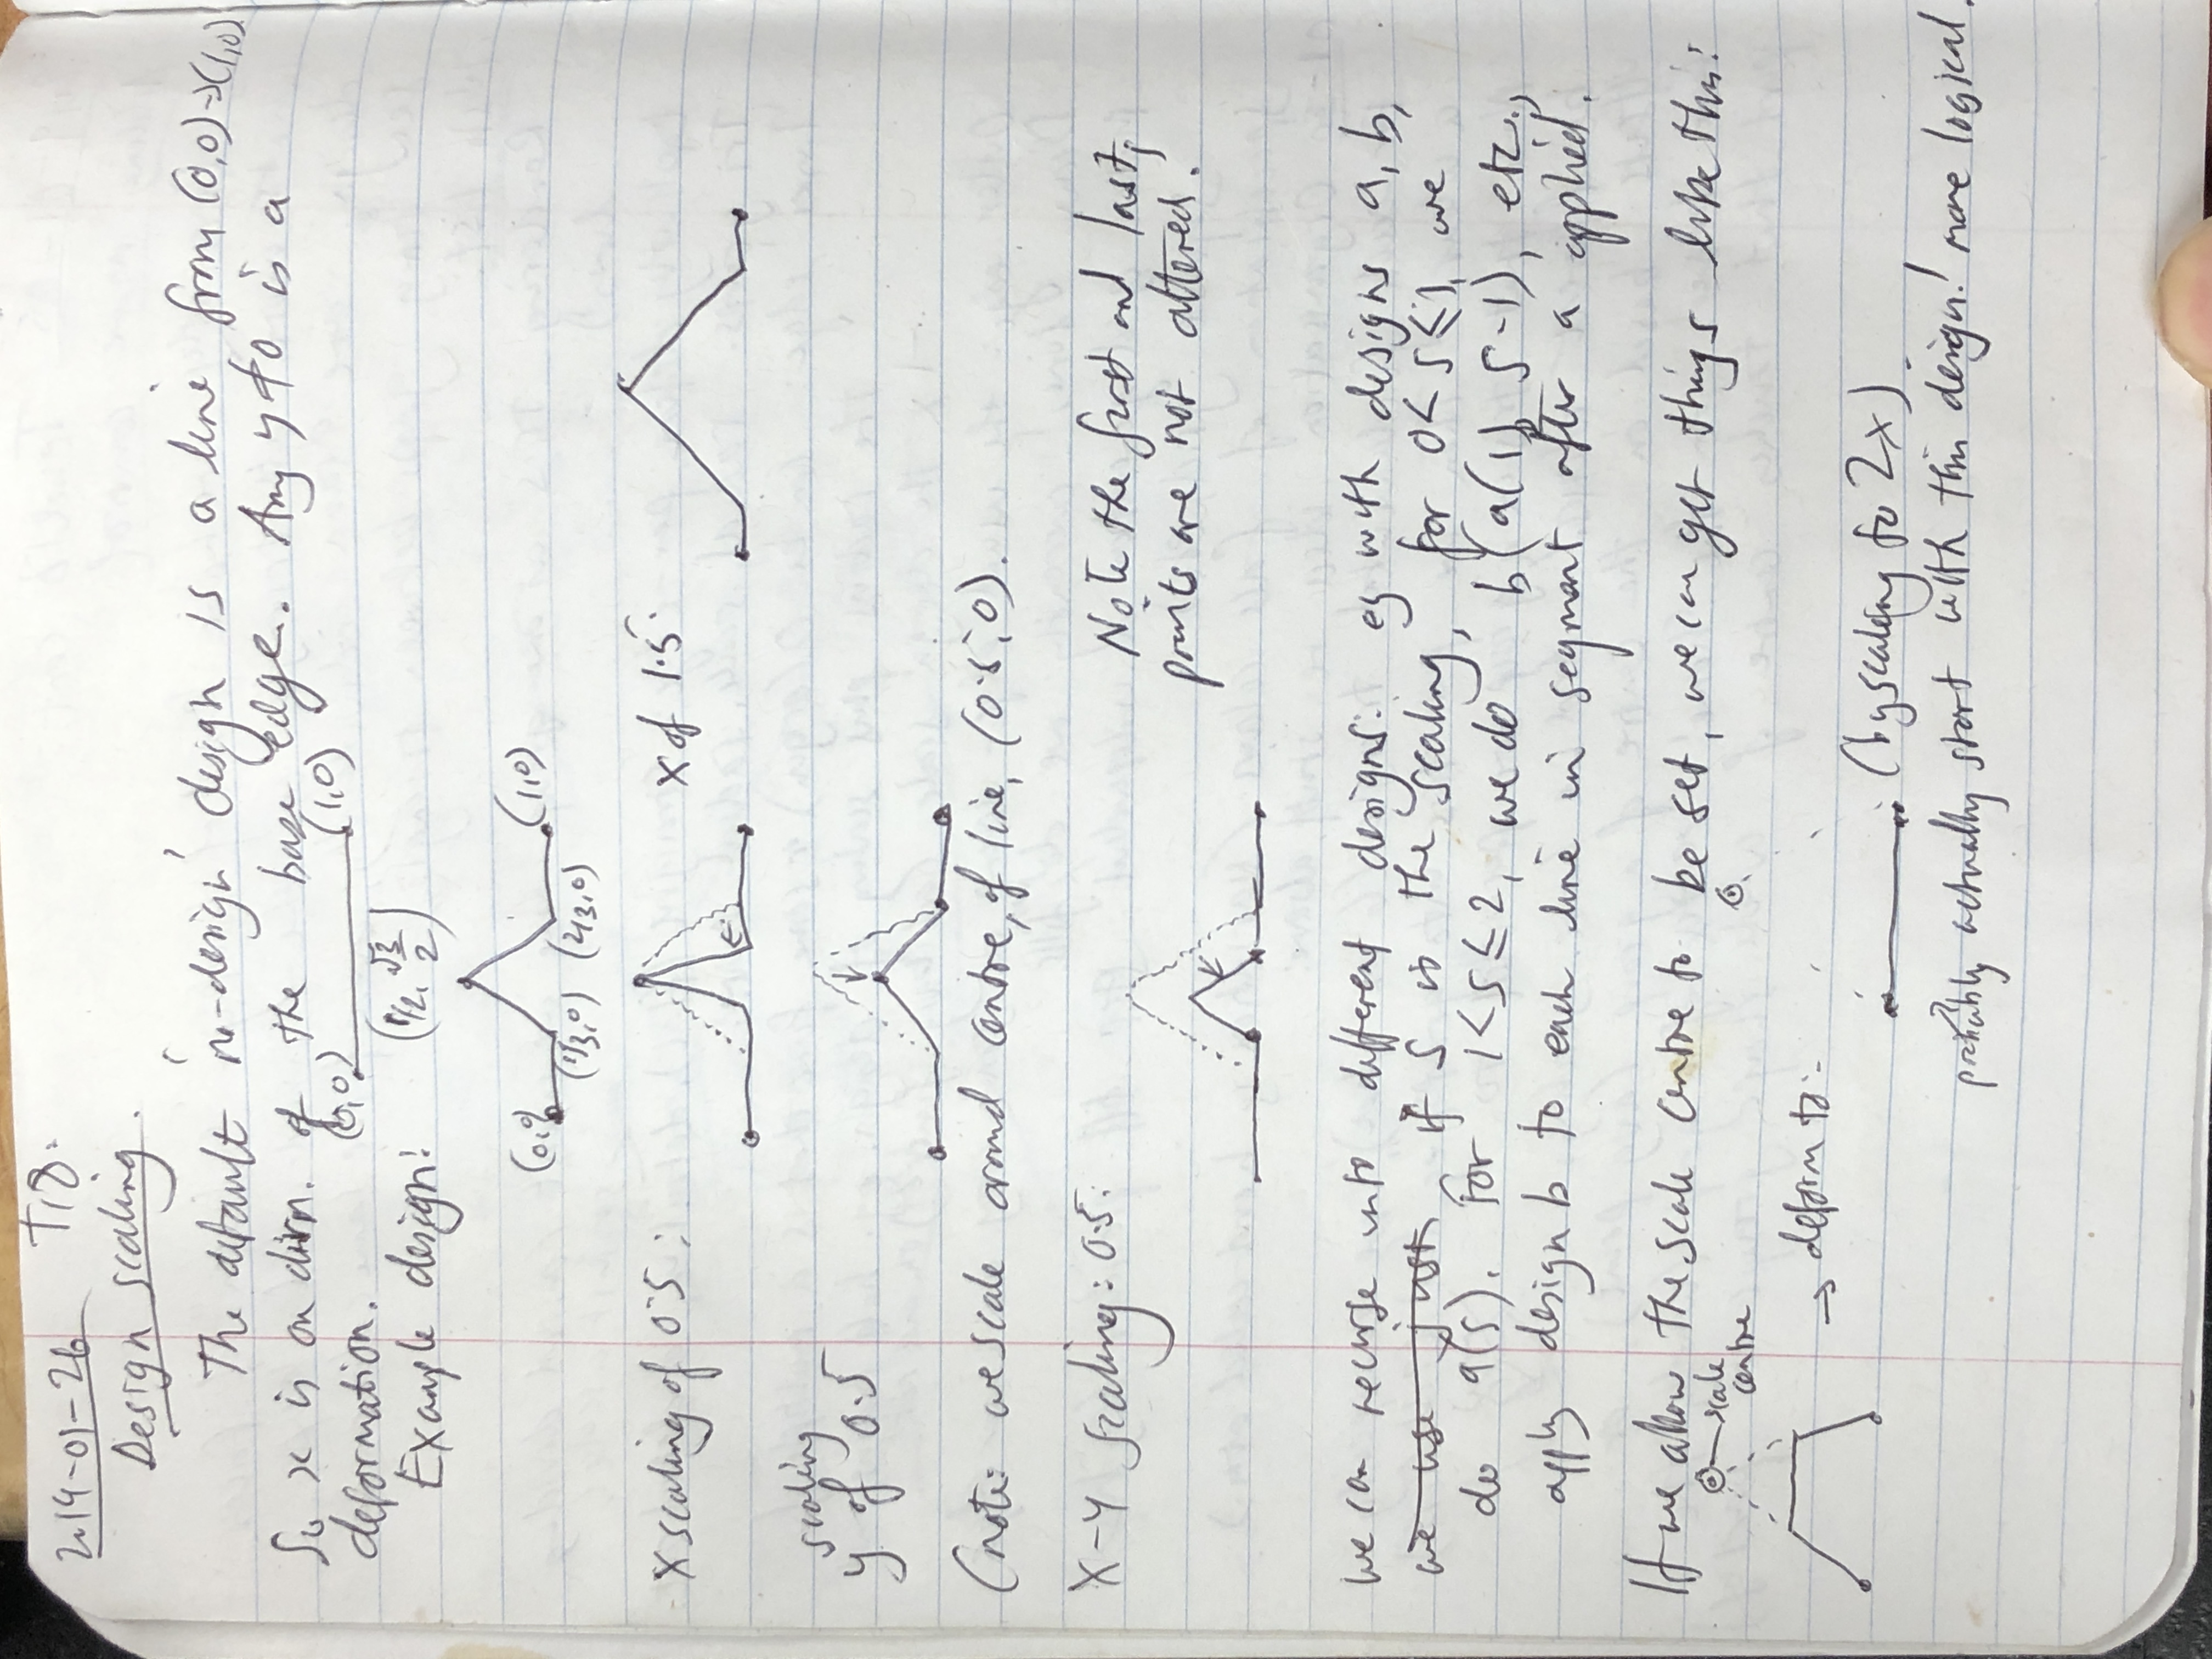 2019-01-26 T18.
Design scaling.
The default 'no-design' design is a line from (0,0)→(1,0).
So x is on dirn. of the base edge. Any y≠0 is a
deformation. (0,0) (1,0)
Example design: (1/2, √3/2)
(0,0) (1,0)
(1/3,0) (2/3,0)
X scaling of 0.5: X of 1.5:
scaling
y of 0.5
(note: we scale around centre, of line, (0.5,0).
X-Y scaling: 0.5:
Note the first and last
points are not altered.
We can recurse into different designs: eg with designs a, b,
we use just if S is the scaling, for 0<S≤1, we
do a(S). For 1<S≤2, we do b(a(1), S-1), etc.,
apply design b to each line in segment after a applied.
If we allow the scale centre to be set, we can get things like this:
scale
centre
→ deform to:-
(by scaling to 2x).
probably actually start with this design! more logical.